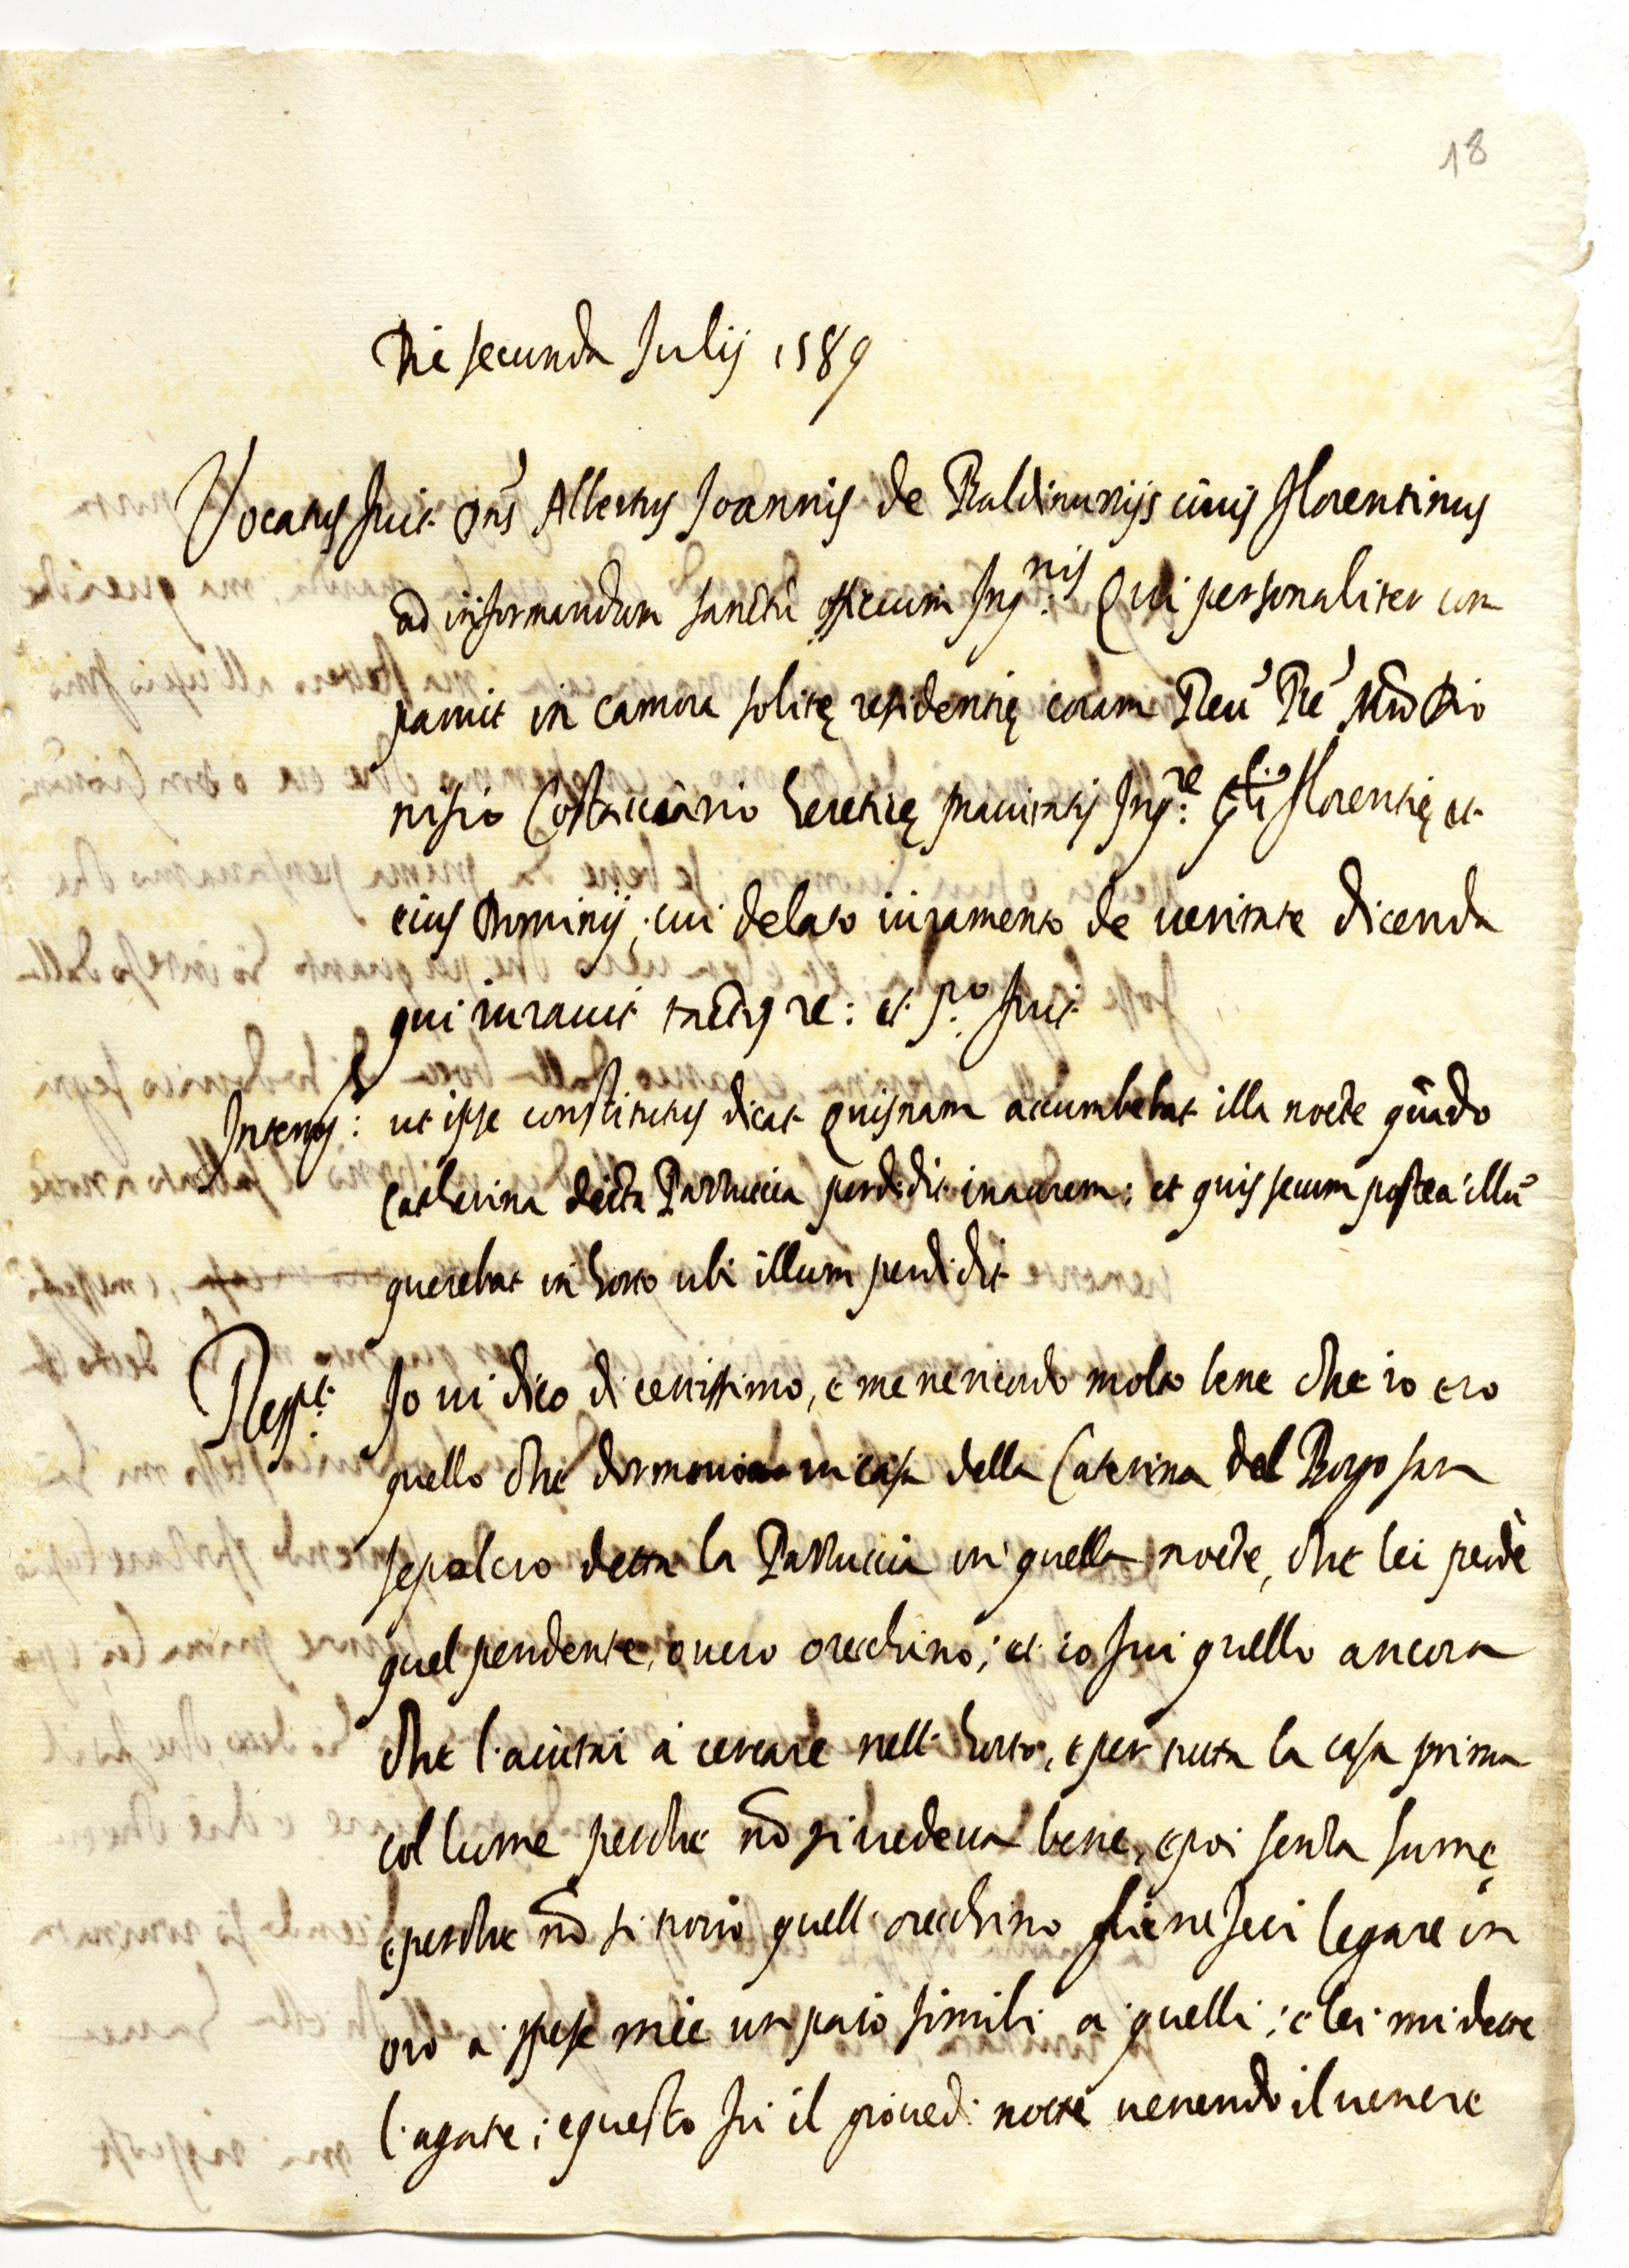 18
Die secunda Julij 1589
Vocatus fuit Dns Albertus Joannis de Baldinuccijs ciuis florentinus
ad informandum sanctũ officium Inq.nis Qui personaliter com
paruit in camera solitę residentię coram Reu Pre Mro Dio
nisio Costacciario heretice prauitatis Inq.re Gnli Florentię et
eius Dominij, cui delato iuramento de ueritate dicenda
qui iurauit tactis re: et p.o fuit
Interrog: ut ipse constitutus dicat quisnam accumbebat illa nocte quãdo
Catherina dicta Parruccia perdidit inaurem; et quis secum postea illũ
querebat in horto ubi illum perdidit
Resp.t Io ui dico di certissimo, e me ne ricordo molto bene che io ero
quello che dormiuo in casa della Caterina del Borgo san
sepolcro detta la Parruccia in quella nocte, che lei perdè
quel pendente, ouero orecchino; et io fui quello ancora
che l'aiutai à cercare nell'horto, e per tutta la casa prima
col lume perche nõ si uedeua bene, e poi senza lume,
e perche nõ si trouò quell'orecchino gliene feci legare in
oro a spese mie un paio simili a quelli; e lei mi dette
l'agate; e questo fu il giouedi notte uenendo il uenere